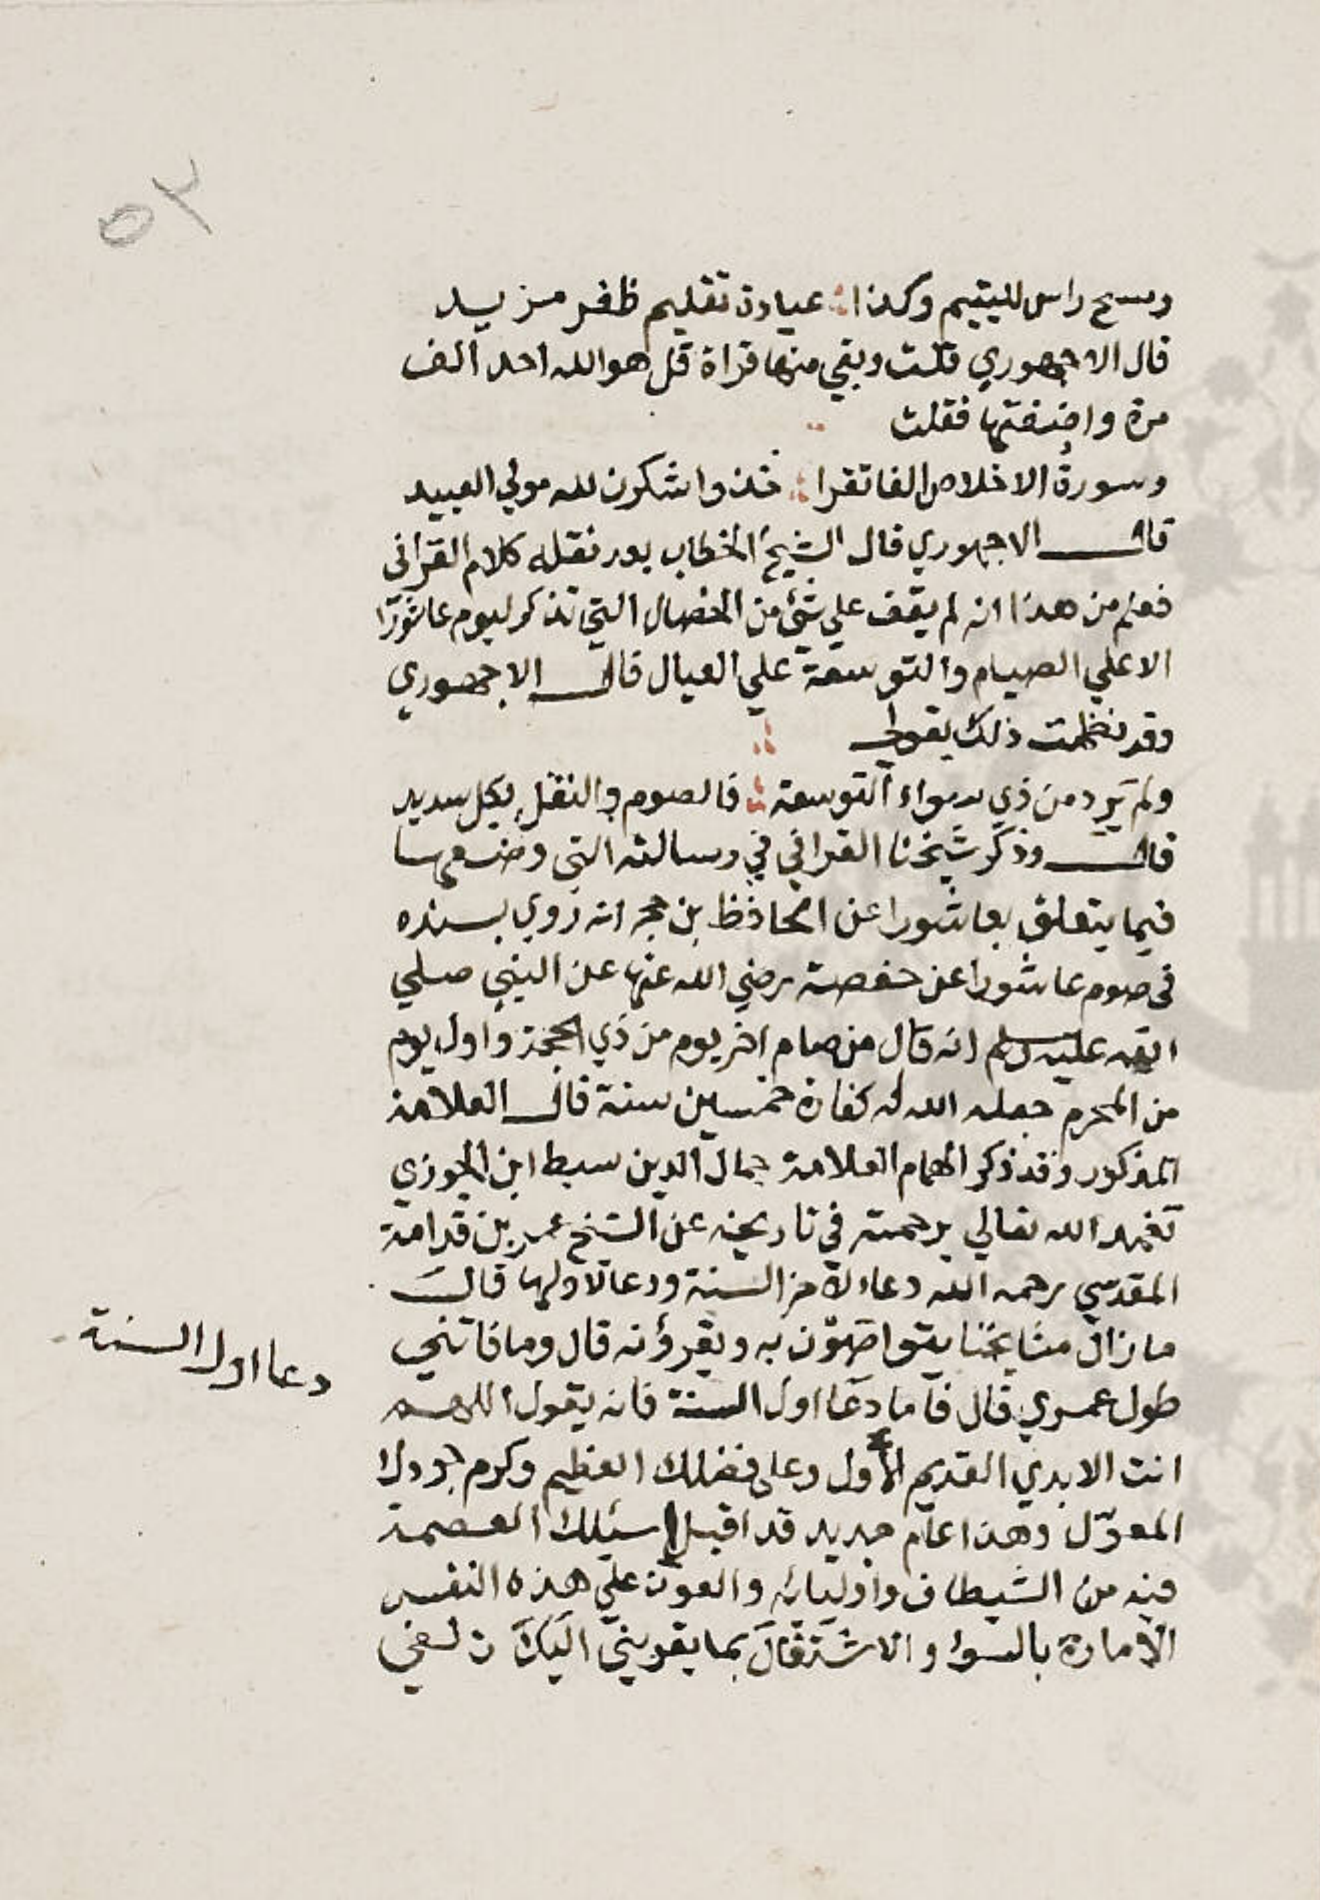 ٥٢
ومسح راس لليتيم وكذا عيادة تقليم ظفر مزيد
قال الاجهوري قلت وبقي منها قراة قل هو الله احد الف
مرة واضفتها فقلت
وسورة الاخلاص الفا تقرا خذ واشكرن لله مولي العبيد
قال الاجهوري قال الشيخ الحطاب بعد نقله كلام القرافي
فعلم من هذا انه لم يقف علي شئ من الخصال التي تذكر ليوم عاشورا
الا علي الصيام والتوسعة علي العيال قال الاجهوري
وقد نظمت ذلك بقولي
ولم يرد من ذي سواء التوسعة فالصوم والنقل بكل سديد
قال وذكر شيخنا القرافي في رسالته التي وضعها
فيما يتعلق بعاشورا عن الحافظ بن حجر انه روي بسنده
في صوم عاشورا عن حفصة رضي الله عنها عن النبي صلي
الله عليه وسلم انه قال من صام اخر يوم من ذي الحجة واول يوم
من المحرم جعله الله له كفارة خمسين سنة قال العلامة
المذكور وقد ذكر الهمام العلامة جمال الدين سبط ابن الجوزي
تغمده الله تعالي برحمته في تاريخه عن الشيخ عمر بن قدامة
المقدسي رحمه الله دعاء لاخر السنة ودعا لاولها قال
ما زال مشايخنا يتواصون به ويقرؤنه قال وما فاتني
طول عمري قال فاما دعا اول السنة فانه يقول اللهم
انت الابدي القديم الاول وعلى فضلك العظيم وكرم جودك
المعول وهذا عام جديد قد اقبل اسئلك العصمة
فيه من الشيطان واوليائه والعون علي هذه النفس
الامارة بالسوء والاشتغال بما يقربني اليك زلفي
دعا اول السنة